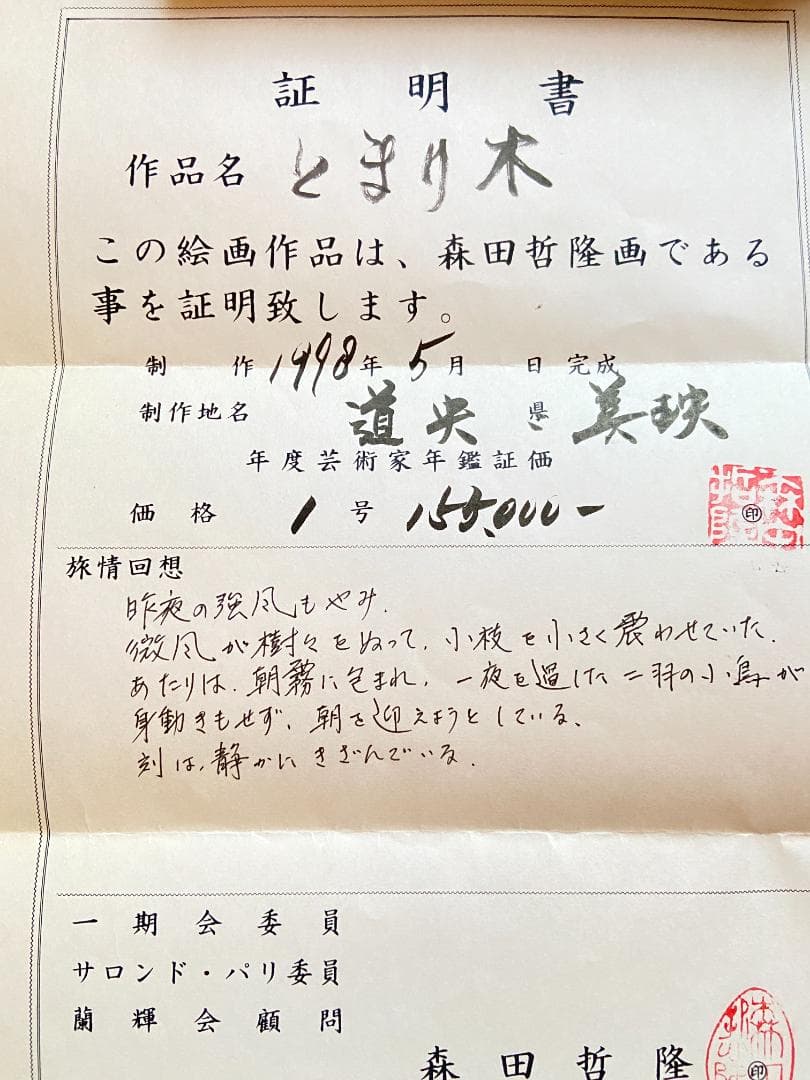 証明書
作品名 とまり木
この絵画作品は、森田哲隆画である
事を証明致します。
制作 1998年 5月 日完成
制作地名 道央 県 美瑛
年度芸術家年鑑証価
価格 1号 155,000-
印
旅情回想
昨夜の強風もやみ.
微風が樹々をぬって、小枝を小さく震わせていた.
あたりは、朝霧に包まれ、一夜を過した二羽の小鳥が
身動きもせず、朝を迎えようとしている、
刻は、静かにきざんでいる.
一期会委員
サロンド・パリ委員
蘭輝会顧問
森田哲隆
印